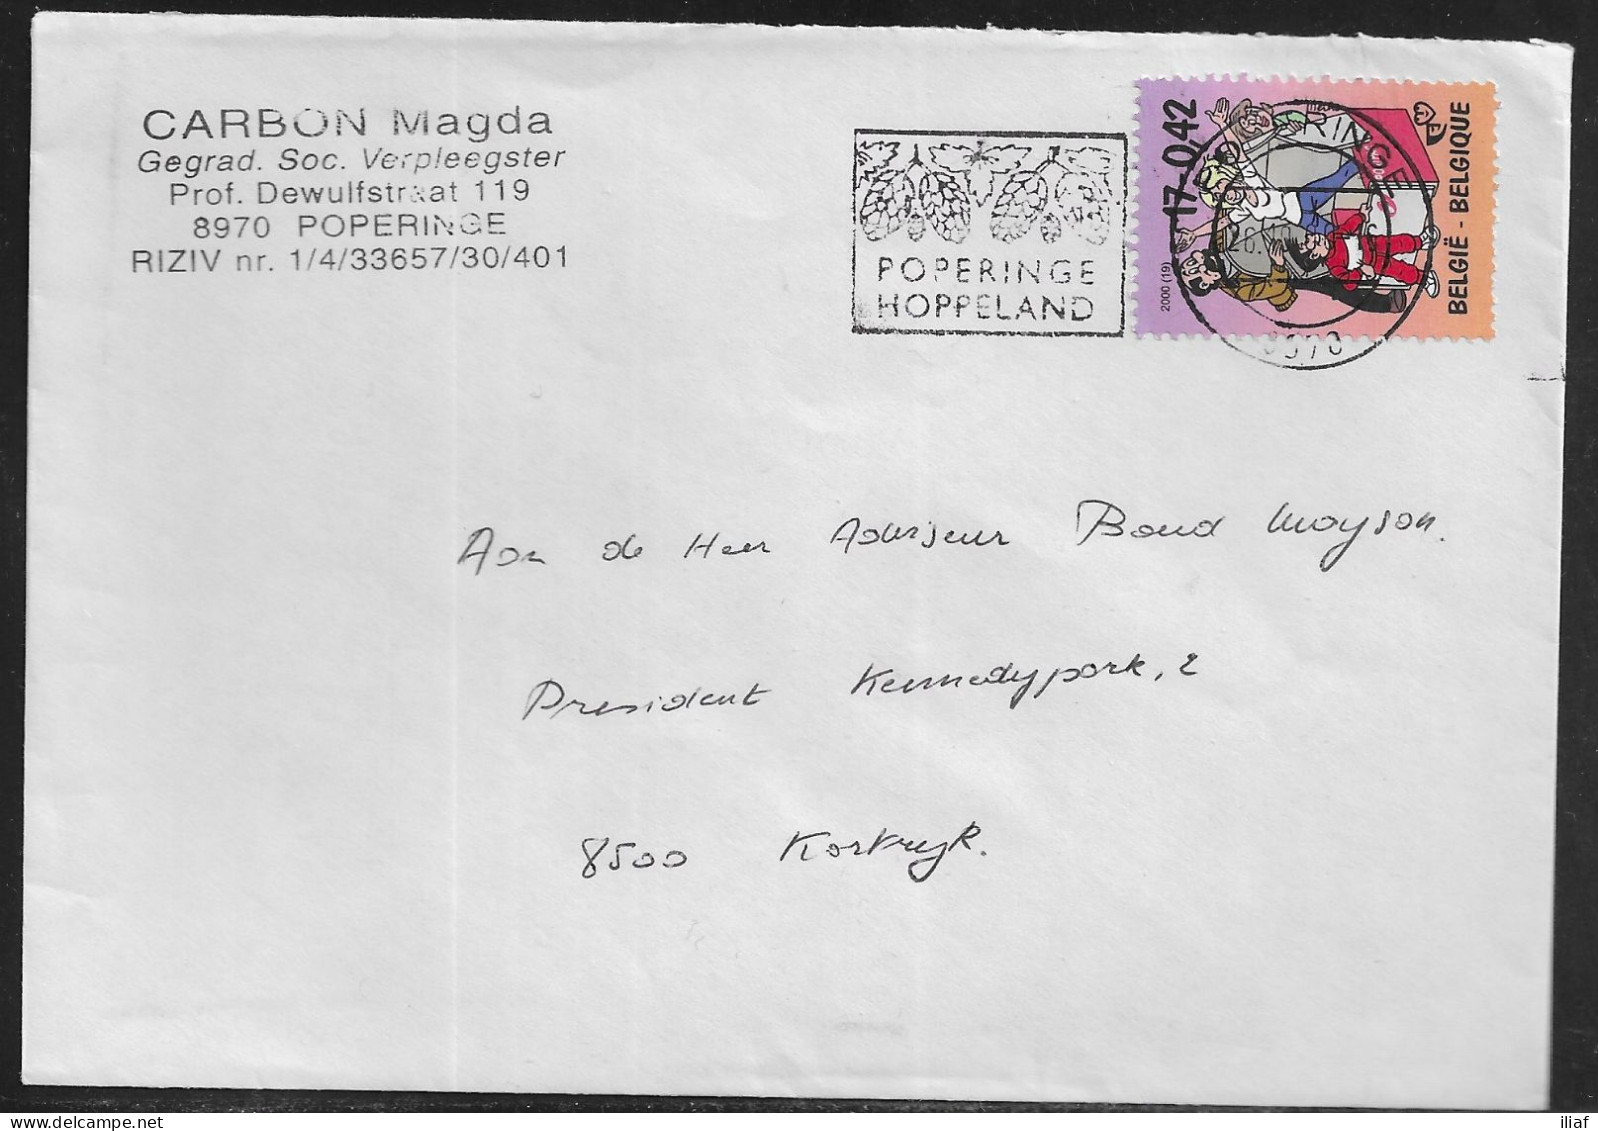 CARBON Magda
Gegrad. Soc. Verpleegster
Prof. Dewulfstraat 119
8970 POPERINGE
RIZIV nr. 1/4/33657/30/401
POPERINGE
HOPPELAND
17-0,42
2000 (19)
BELGIË - BELGIQUE
POPERINGE
8970
Aan de Heer Adviseur Boud Moyson.
President Kennedypark, 2
8500 Kortrijk.
iliaf